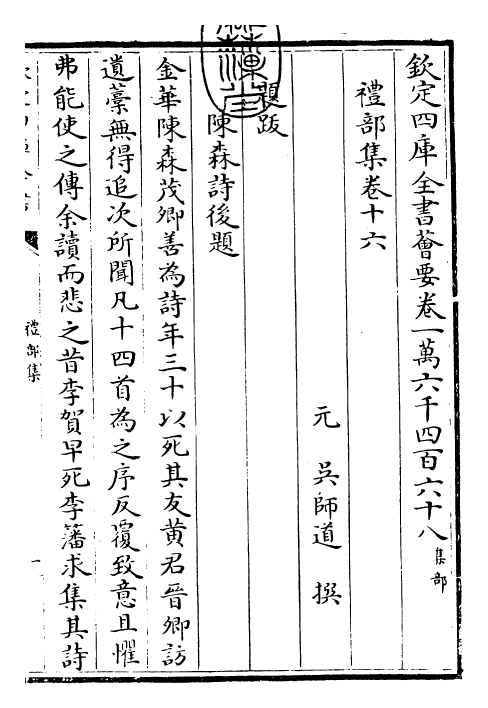 欽定四庫全書薈要卷一萬六千四百六十八 集部
禮部集卷十六
元 吳師道 撰
題跋
陳森詩後題
金華陳森茂卿善為詩年三十以死其友黄君晉卿訪
遺藁無得追次所聞凡十四首為之序反覆致意且懼
弗能使之傳余讀而悲之昔李賀早死李藩求集其詩
禮部集
一